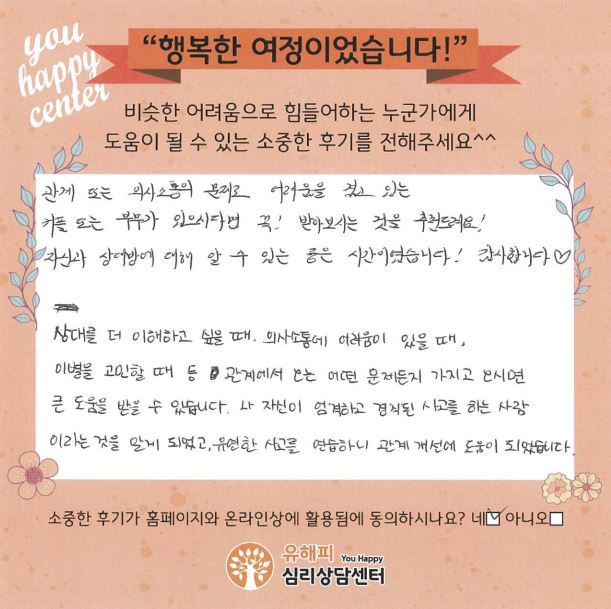 you
happy
center
“행복한 여정이었습니다!”
비슷한 어려움으로 힘들어하는 누군가에게
도움이 될 수 있는 소중한 후기를 전해주세요^^
관계 또는 의사소통의 문제로 어려움을 겪고 있는
커플 또는 부부가 있으시다면 꼭! 받아보시는 것을 추천드려요!
자신과 상대방에 대해 알 수 있는 좋은 시간이었습니다! 감사합니다♡
상대를 더 이해하고 싶을 때, 의사소통에 어려움이 있을 때,
이별을 고민할 때 등 관계에서 오는 어떤 문제든지 가지고 오시면
큰 도움을 받을 수 있습니다. 나 자신이 엄격하고 경직된 사고를 하는 사람
이라는 것을 알게 되었고, 유연한 사고를 연습하니 관계 개선에 도움이 되었습니다.
소중한 후기가 홈페이지와 온라인상에 활용됨에 동의하시나요? 네☑ 아니오☐
유해피 You Happy
심리상담센터